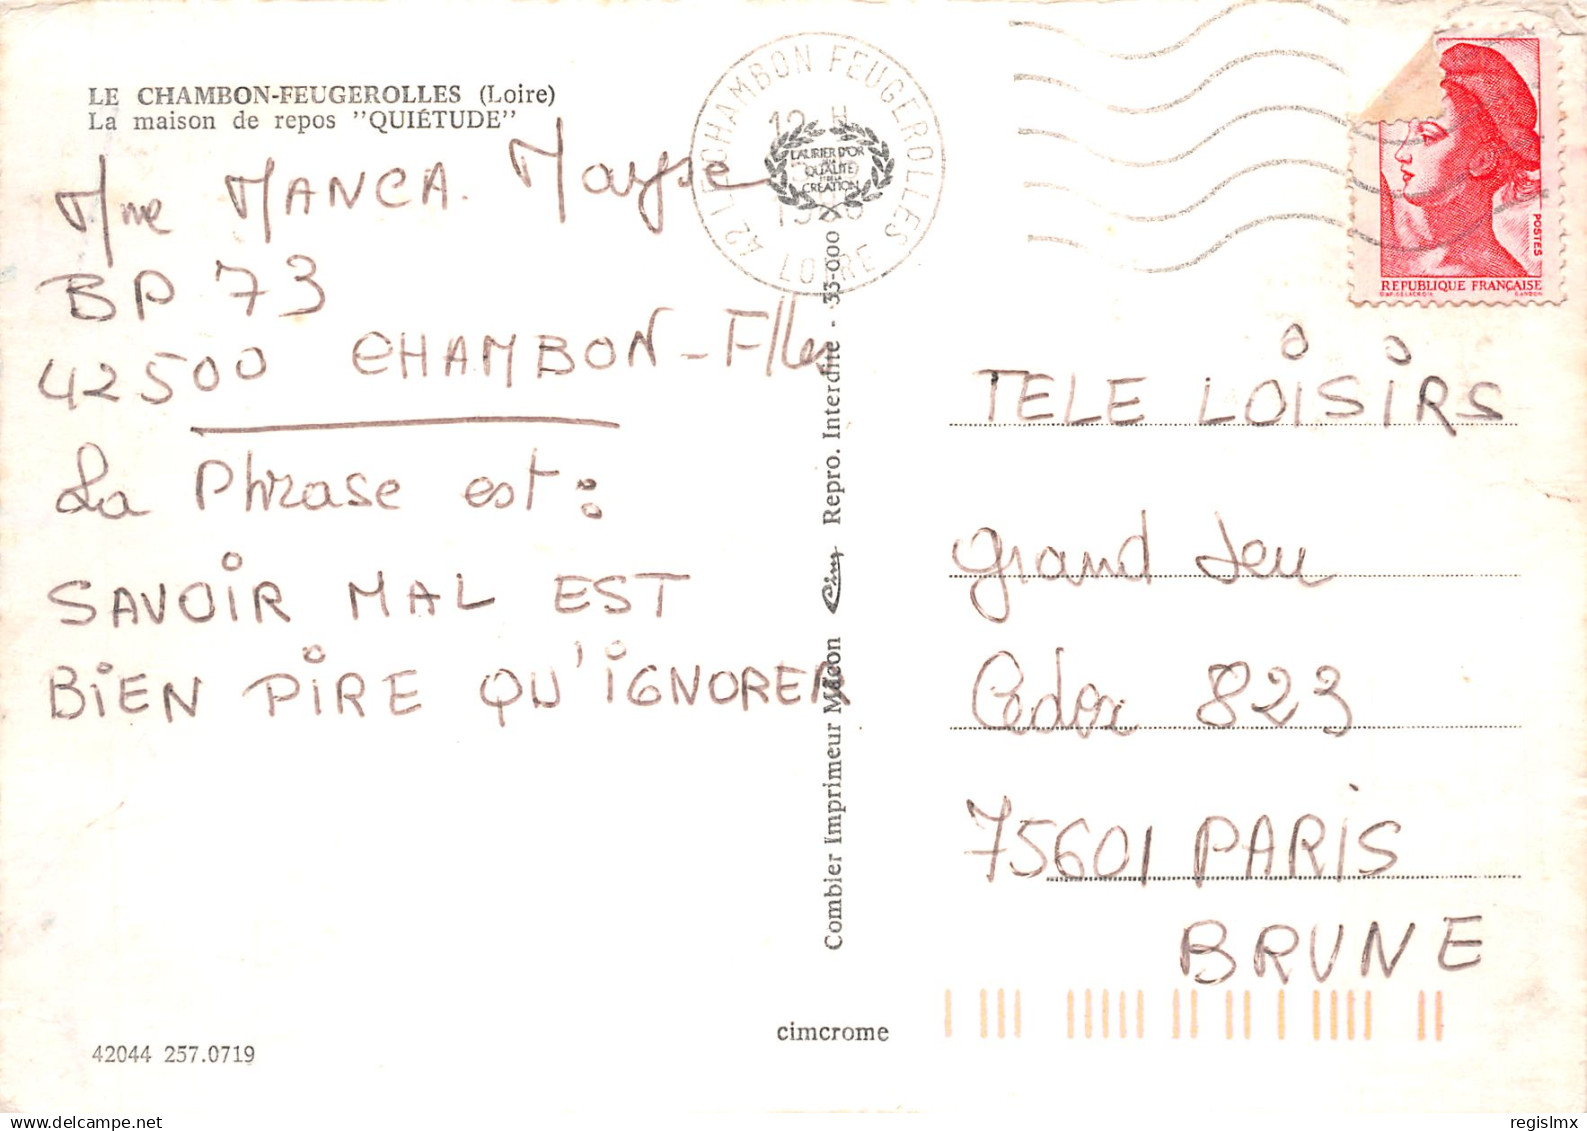 LE CHAMBON-FEUGEROLLES (Loire)
La maison de repos "QUIÉTUDE"
Mme MANCA. Maryse
BP 73
42500 CHAMBON-Flles
La Phrase est :
SAVOIR MAL EST
BIEN PIRE QU'IGNORER
42044 257.0719
Combier Imprimeur Mâcon Cim Repro. Interdite - 33-000
LAURIER D'OR
DE LA
QUALITÉ
ET DE LA
CRÉATION
cimcrome
42 LE CHAMBON FEUGEROLLES
12 H
LOIRE
POSTES
REPUBLIQUE FRANÇAISE
TELE LOISIRS
Grand Jeu
Cedex 823
75601 PARIS
BRUNE
regislmx